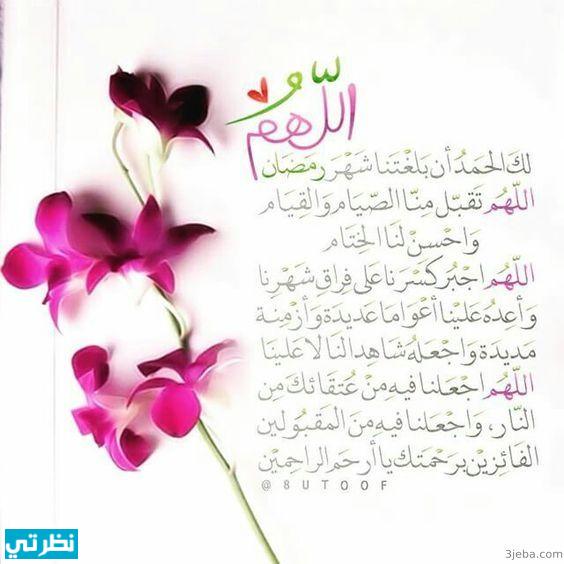 اللّهُمَّ
لكَ الحَمدُ أن بَلغْتَنا شَهْرَ رمَضان
اللّهُم تَقبّل مِنّا الصّيام وَالقِيام
وَاحْسِنْ لنَا الخِتام
اللّهُم اجْبُر كسْرَنا على فِراقِ شَهْرِنا
وَأعِدهُ علَيْنا أعْوَاما عَديدة وَأزْمِنة
مَديدَة وَاجْعلهُ شَاهدا لنَا لا علَينا
اللّهُم اجْعَلنا فيهِ مِنْ عُتقائكَ مِن
النّار، وَاجْعلنا فيهِ منَ المَقبُولين
الفَائزِينْ برَحْمَتك يا أرحَم الراحِمِيْن
@8UTOOF
نظرتي
3jeba.com